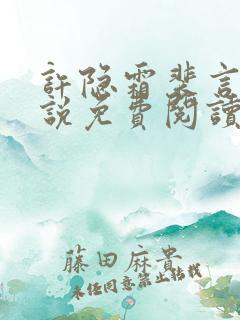 許隐霜裴言
說免費閱讀
藤田麻貴
未经同意禁止转载